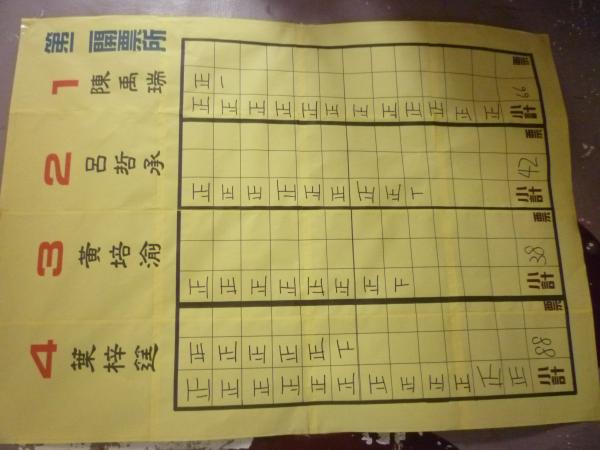 第一開票所
1
陳禹瑞
正正正正正正正正正正正正
正一
小計 66 票
2
呂哲承
正正正正正正正正丅
小計 42 票
3
黃培渝
正正正正正正正下
小計 38 票
4
葉梓筳
正正正正正正正正正正正正
正正正正正下
小計 88 票